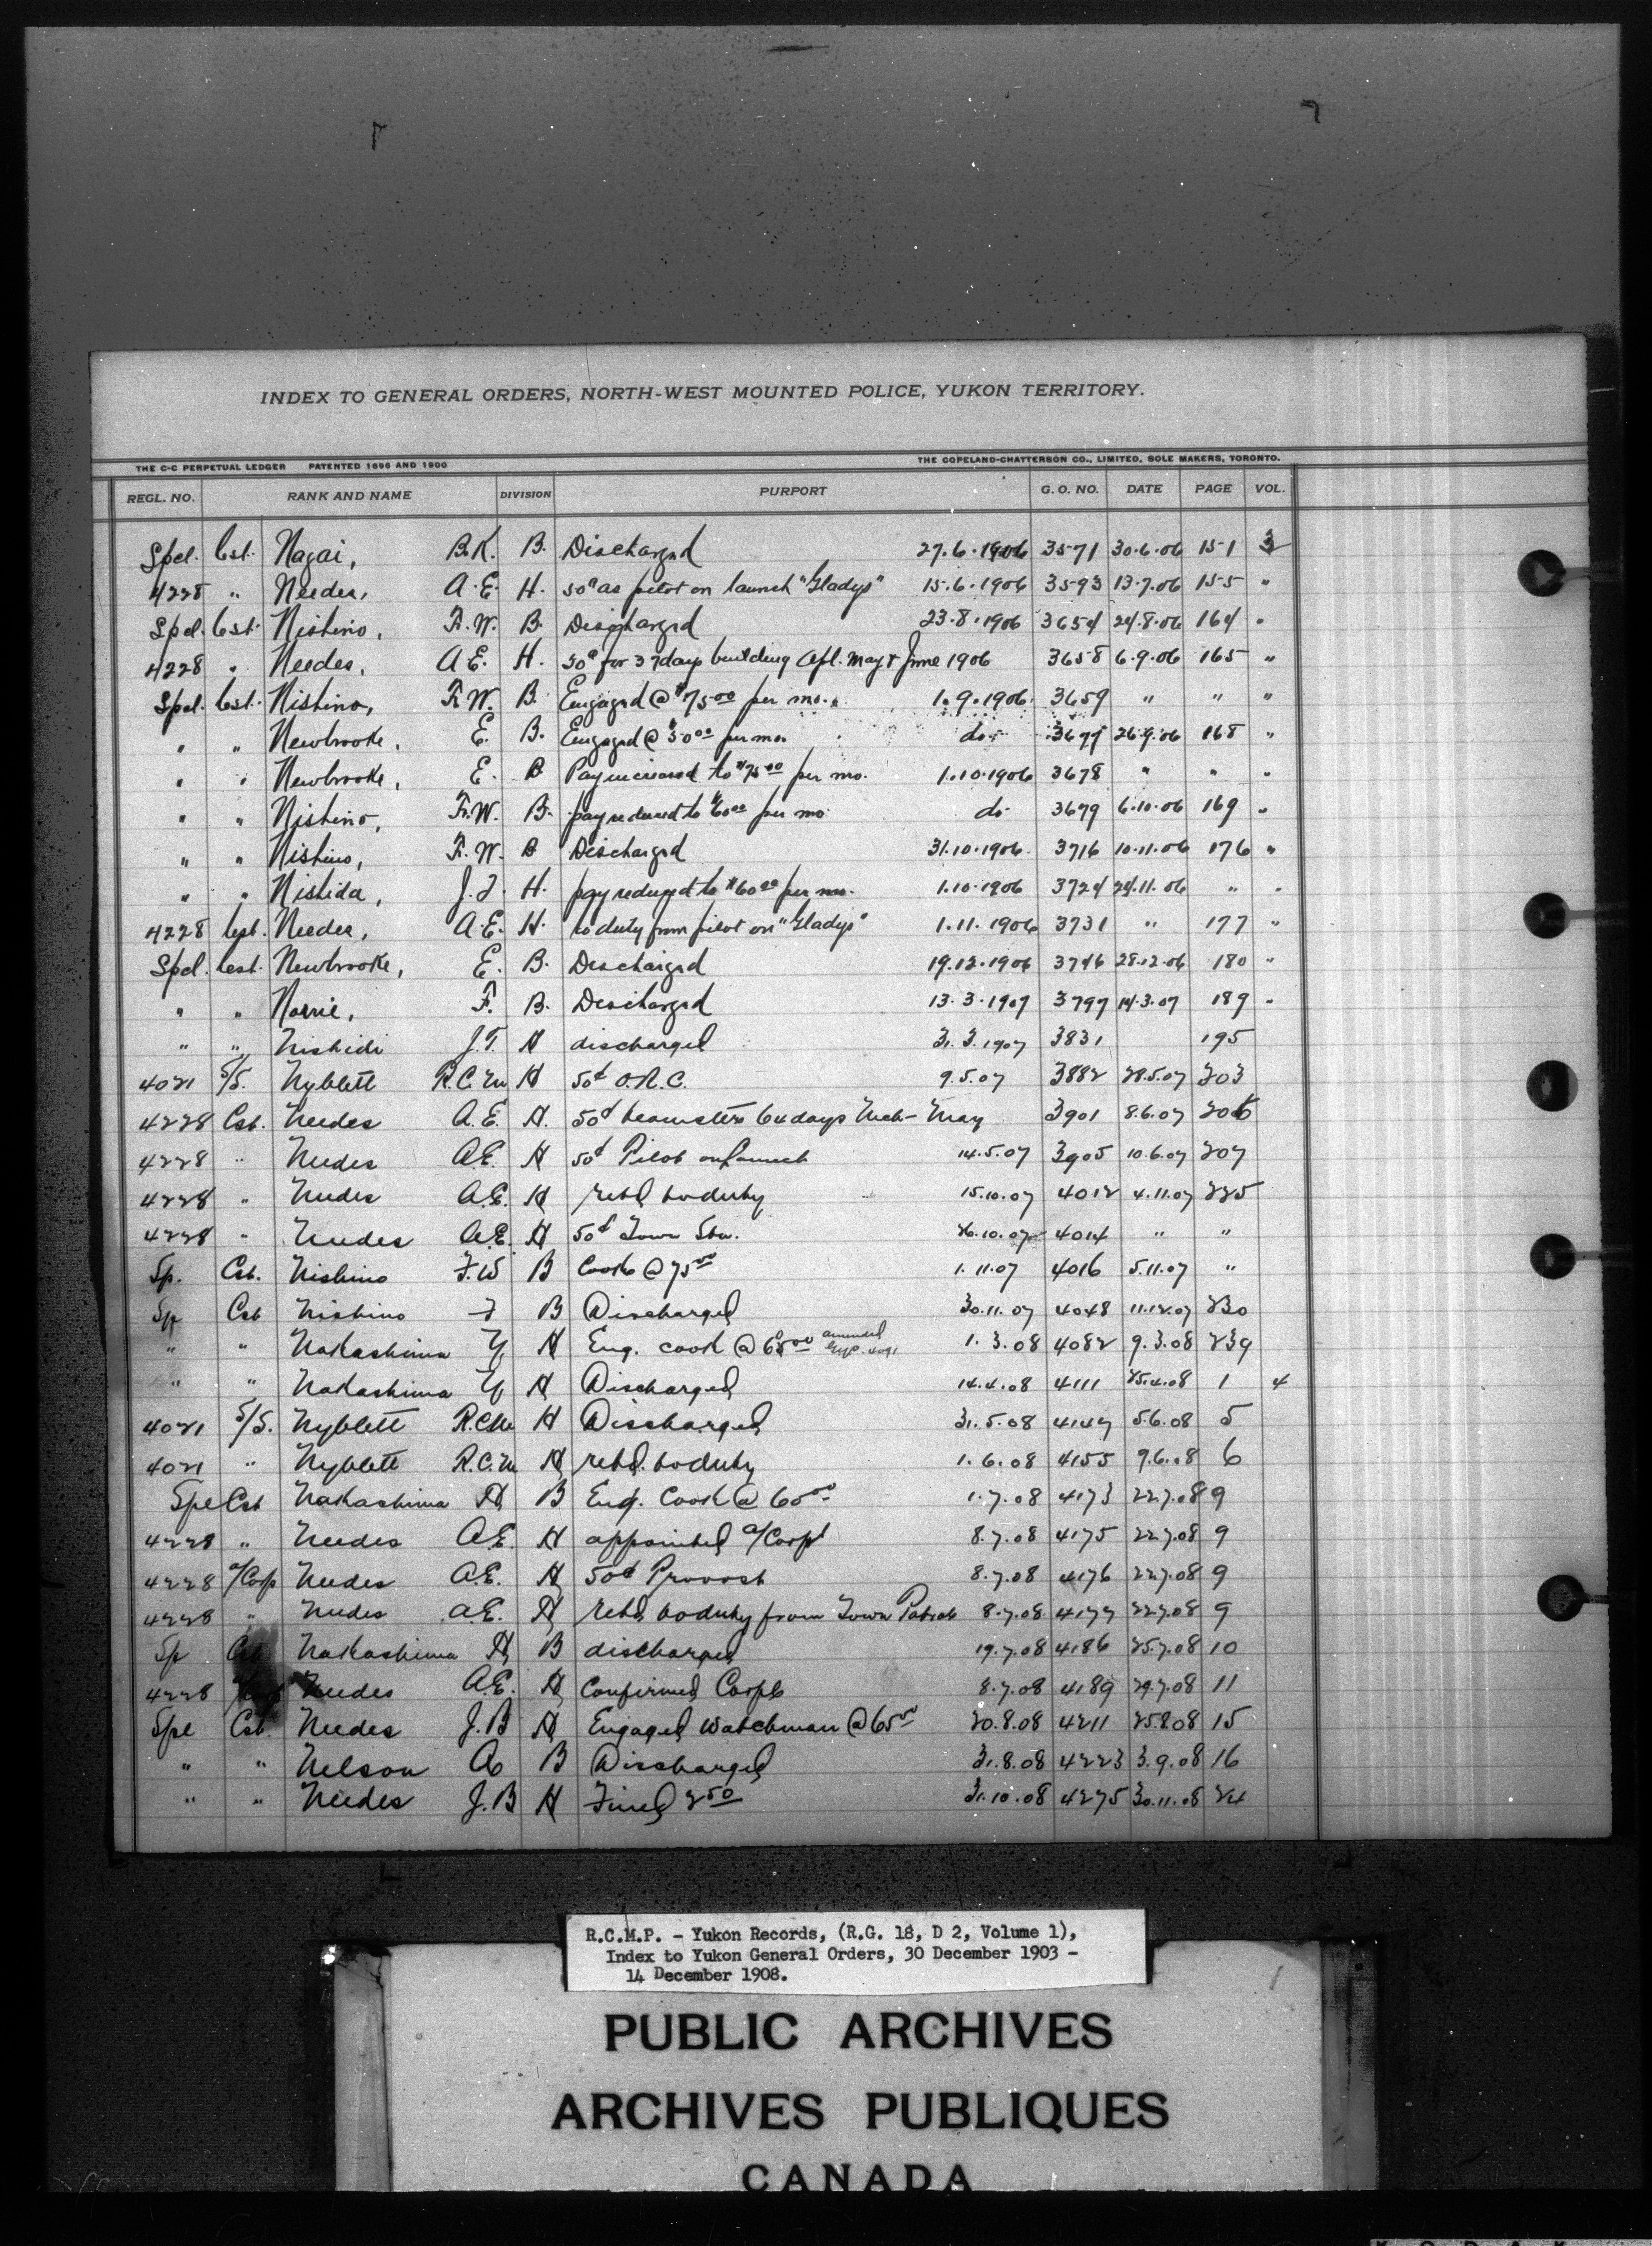 INDEX TO GENERAL ORDERS, NORTH-WEST MOUNTED POLICE, YUKON TERRITORY.
THE C-C PERPETUAL LEDGER PATENTED 1896 AND 1900 THE COPELAND-CHATTERSON CO., LIMITED, SOLE MAKERS, TORONTO.
REGL. NO. RANK AND NAME DIVISION PURPORT G. O. NO. DATE PAGE VOL.
Spcl. Cst. Nagai, B.K. B. Discharged 27.6.1906 3571 30.6.06 151 3
4228 " Needes, A.E. H. 50¢ as pilot on launch "Gladys" 15.6.1906 3593 13.7.06 155 "
Spcl. Cst. Nishino, F.W. B. Discharged 23.8.1906 3654 24.8.06 164 "
4228 " Needes, A.E. H. 50¢ for 37days building Apl. May & June 1906 3658 6.9.06 165 "
Spcl. Cst. Nishino, F.W. B. Engaged @ $75.00 per mo. 1.9.1906 3659 " " "
" " Newbrooke, E. B. Engaged @ $50.00 per mo. do. 3677 26.9.06 168 "
" " Newbrooke, E. B Pay increased to $75.00 per mo. 1.10.1906 3678 " " "
" " Nishino, F.W. B. pay reduced to $60.00 per mo do 3679 6.10.06 169 "
" " Nishino, F.W. B Discharged 31.10.1906 3716 10.11.06 176 "
" " Nishida, J.T. H. pay reduced to $60.00 per mo. 1.10.1906 3724 24.11.06 " "
4228 Cst. Needes, A.E. H. to duty from pilot on "Gladys" 1.11.1906 3731 " 177 "
Spcl. Cst. Newbrooke, E. B. Discharged 19.12.1906 3746 28.12.06 180 "
" " Norrie, F. B. Discharged 13.3.1907 3797 14.3.07 189 "
" " Nishidi J.T. H discharged 31.3.1907 3831 195
4021 S/S. Nyblett R.C.M H 50¢ O.R.C. 9.5.07 3882 28.5.07 203
4228 Cst. Needes A.E. H. 50¢ teamster 64days Mch- May 3901 8.6.07 206
4228 " Needes A.E. H 50¢ Pilot on launch 14.5.07 3905 10.6.07 207
4228 " Needes A.E. H retd to duty 15.10.07 4012 4.11.07 225
4228 " Needes A.E. H 50¢ Town Stn. 26.10.07 4014 " "
Sp. Cst. Nishino F.W B Cook @ 75.00 1.11.07 4016 5.11.07 "
Sp Cst Nishino F B Discharged 30.11.07 4048 11.12.07 230
" " Nakashima Y. H Eng. cook @ 65.00 amended 1.3.08 4082 9.3.08 239
" " Nakashima Y. H Discharged 14.4.08 4111 25.4.08 1 4
4021 S/S. Nyblett R.C.M H Discharged 31.5.08 4147 5.6.08 5
4021 " Nyblett R.C.M H retd. to duty 1.6.08 4155 9.6.08 6
Spe Cst Nakashima H B Eng. Cook @ 60.00 1.7.08 4173 22.7.08 9
4228 " Needes A.E. H appointed a/Corpl 8.7.08 4175 22.7.08 9
4228 a/Corp Needes A.E. H 50¢ Provost 8.7.08 4176 22.7.08 9
4228 " Needes A.E. H retd to duty from Town Patrol 8.7.08 4177 22.7.08 9
Sp Cst Nakashima H B discharged 19.7.08 4186 25.7.08 10
4228 Needes A.E. H Confirmed Corpl 8.7.08 4189 29.7.08 11
Spe Cst. Needes J.B H Engaged Watchman @ 65.00 20.8.08 4211 25.8.08 15
" " Nelson A B Discharged 31.8.08 4223 3.9.08 16
" " Needes J.B H Fined 2.50 31.10.08 4275 30.11.08 24
R.C.M.P. - Yukon Records, (R.G. 18, D 2, Volume 1),
Index to Yukon General Orders, 30 December 1903 -
14 December 1908.
PUBLIC ARCHIVES
ARCHIVES PUBLIQUES
CANADA